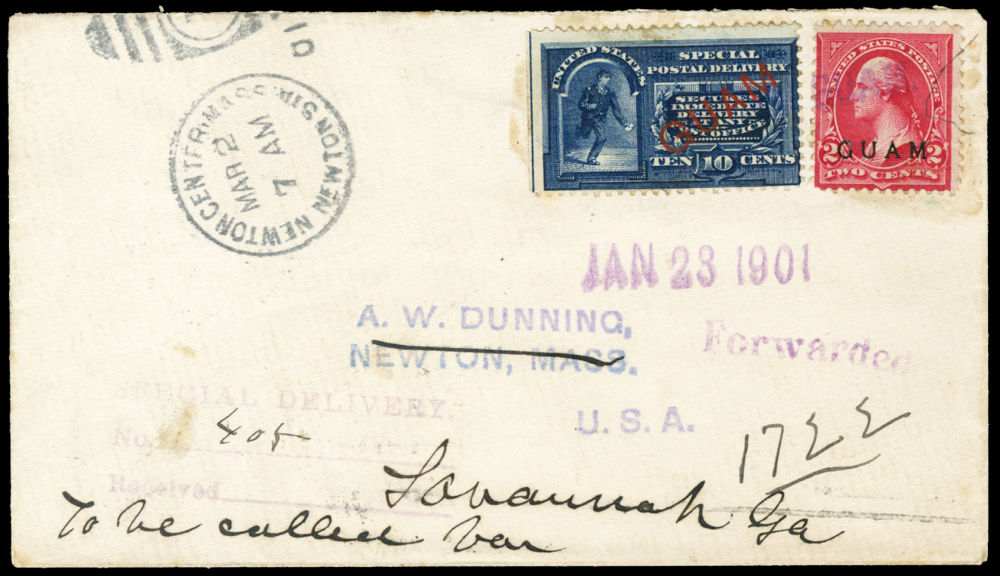 01
NEWTON CENTER, MASS. STA.
MAR 2
7 AM
UNITED STATES
SPECIAL
POSTAL DELIVERY
SECURES
IMMEDIATE
DELIVERY
AT ANY
POST OFFICE
TEN 10 CENTS
GUAM
UNITED STATES POSTAGE
GUAM
2 2
TWO CENTS
JAN 23 1901
A. W. DUNNING,
NEWTON, MASS.
U. S. A.
Forwarded
SPECIAL DELIVERY.
No. 405
Received
1722
Savannah Ga
To be called